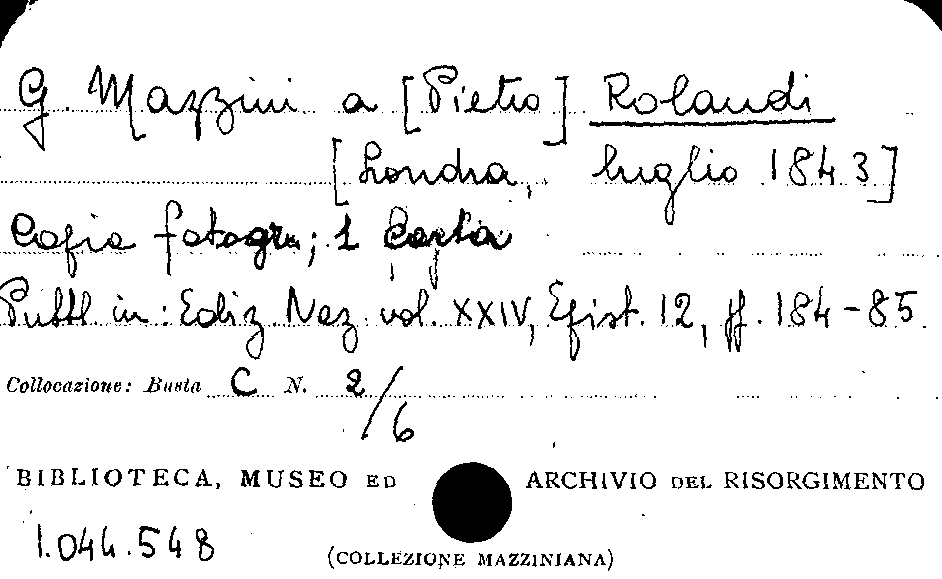 G. Mazzini a [Pietro] Rolandi
[Londra, luglio 1843]
Copia fotogr.; 1 carta
Pubbl. in: Ediz. Naz. vol. XXIV, Epist. 12, pp. 184-85
Collocazione: Busta C N. 2/6
BIBLIOTECA, MUSEO ED ARCHIVIO DEL RISORGIMENTO
1.044.548
(COLLEZIONE MAZZINIANA)